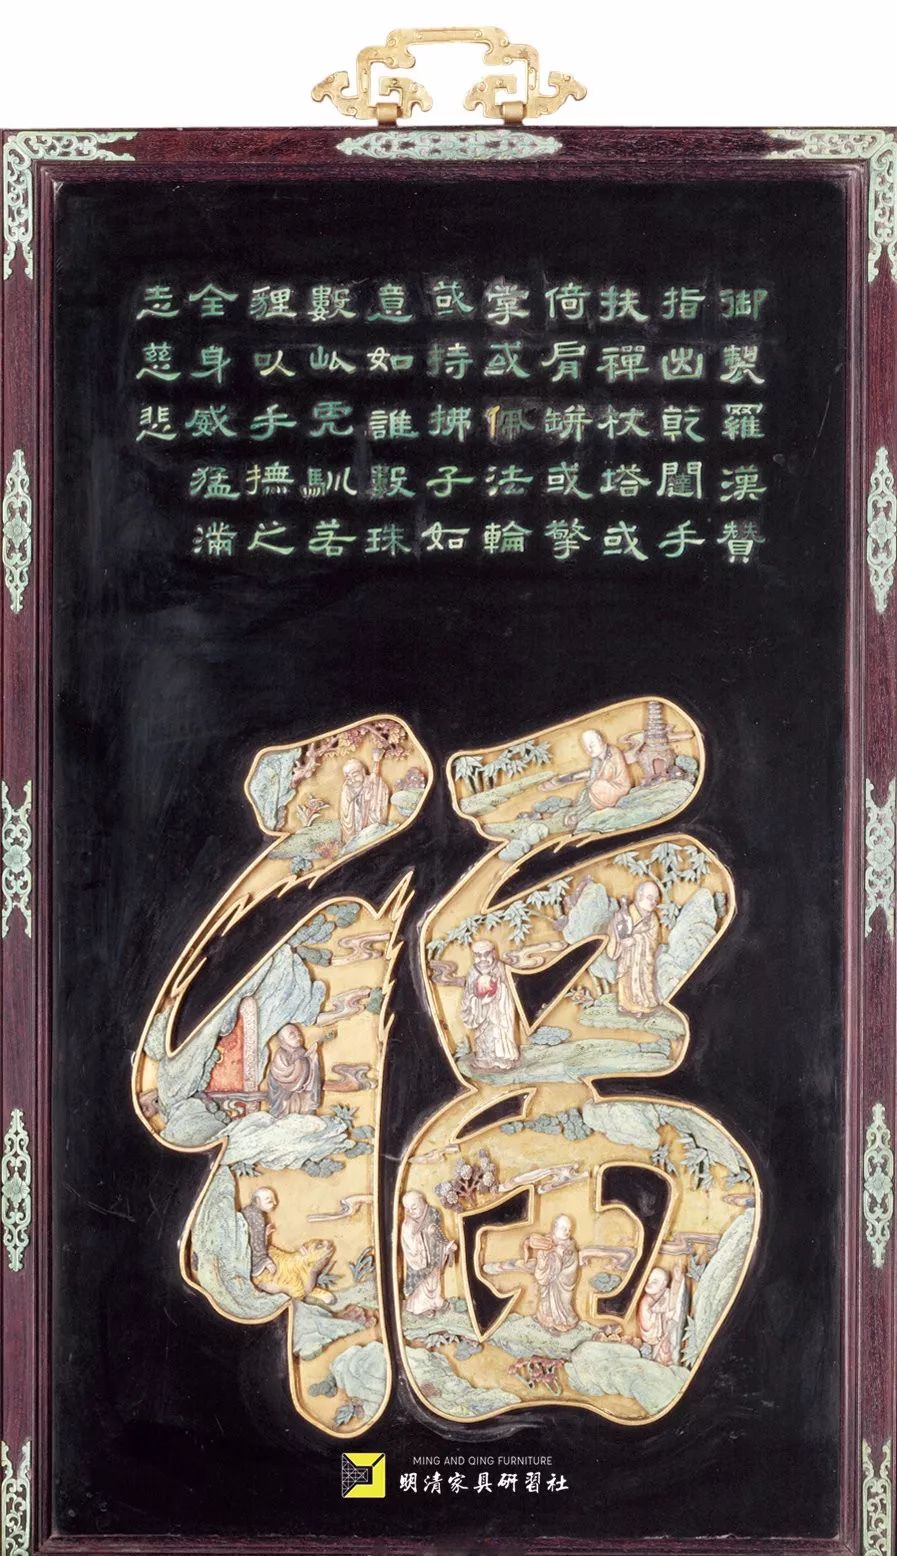 御製羅漢贊
指出乾闥手
扶禪杖塔或
倚肩缾或擎
掌或佩法輪
或持拂子如
意如誰數珠
數此虎馴若
貍以手撫之
全身威猛滿
志慈悲
福
MING AND QING FURNITURE
明清家具研習社